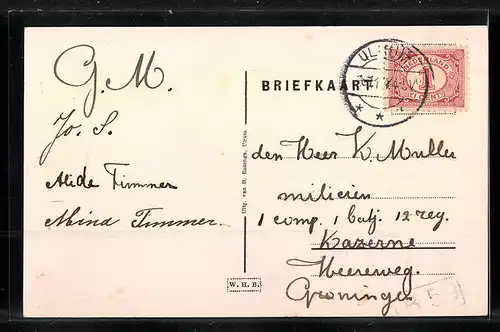 G. M.
Jo. S.
Alide Timmer
Mina Timmer.
Uitg. van H. Ulrum.
W. H. B.
BRIEFKAART
ULRUM
NEDERLAND
den Heer K. Muller
milicien
1 comp. 1 batj. 12 reg.
Kazerne
Heereweg.
Groningen